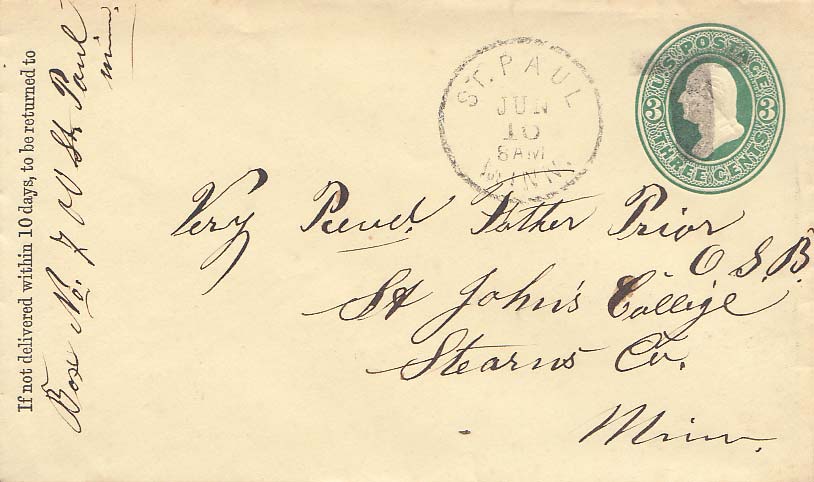 If not delivered within 10 days, to be returned to
Box No. 700 St. Paul
Minn.
ST. PAUL
JUN
10
8AM
MINN.
U.S. POSTAGE
3 3
THREE CENTS
Very Revd. Father Prior
O S. B.
St John's College
Stearns Co.
Minn.